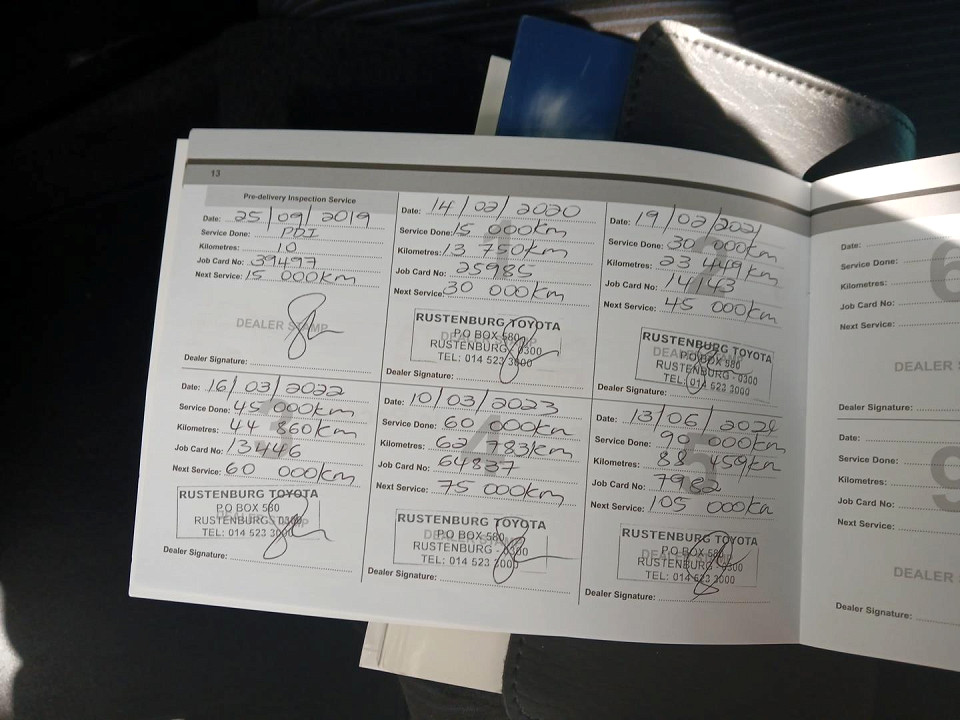 13
Pre-delivery Inspection Service
Date: 25/09/2019
Service Done: PDI
Kilometres: 10
Job Card No: 39497
Next Service: 15 000km
DEALER STAMP
Dealer Signature:
1
Date: 14/02/2020
Service Done: 15 000km
Kilometres: 13 750km
Job Card No: 25985
Next Service: 30 000km
RUSTENBURG TOYOTA
P.O BOX 580
RUSTENBURG 0300
TEL: 014 523 3000
Dealer Signature:
2
Date: 19/02/2021
Service Done: 30 000km
Kilometres: 23 449km
Job Card No: 14143
Next Service: 45 000km
RUSTENBURG TOYOTA
P.O BOX 580
RUSTENBURG - 0300
TEL: 014 523 3000
Dealer Signature:
3
Date: 16/03/2022
Service Done: 45 000km
Kilometres: 44 860km
Job Card No: 13446
Next Service: 60 000km
RUSTENBURG TOYOTA
P.O BOX 580
RUSTENBURG 0300
TEL: 014 523 3000
Dealer Signature:
4
Date: 10/03/2023
Service Done: 60 000km
Kilometres: 62 783km
Job Card No: 64837
Next Service: 75 000km
RUSTENBURG TOYOTA
P.O BOX 580
RUSTENBURG - 0300
TEL: 014 523 3000
Dealer Signature:
5
Date: 13/06/
Service Done: 90 000km
Kilometres: 88 459km
Job Card No: 7982
Next Service: 105 000km
RUSTENBURG TOYOTA
P.O BOX 580
RUSTENBURG - 0300
TEL: 014 523 3000
Dealer Signature:
6
Date:
Service Done:
Kilometres:
Job Card No:
Next Service:
DEALER
Dealer Signature:
9
Date:
Service Done:
Kilometres:
Job Card No:
Next Service:
DEALER
Dealer Signature: